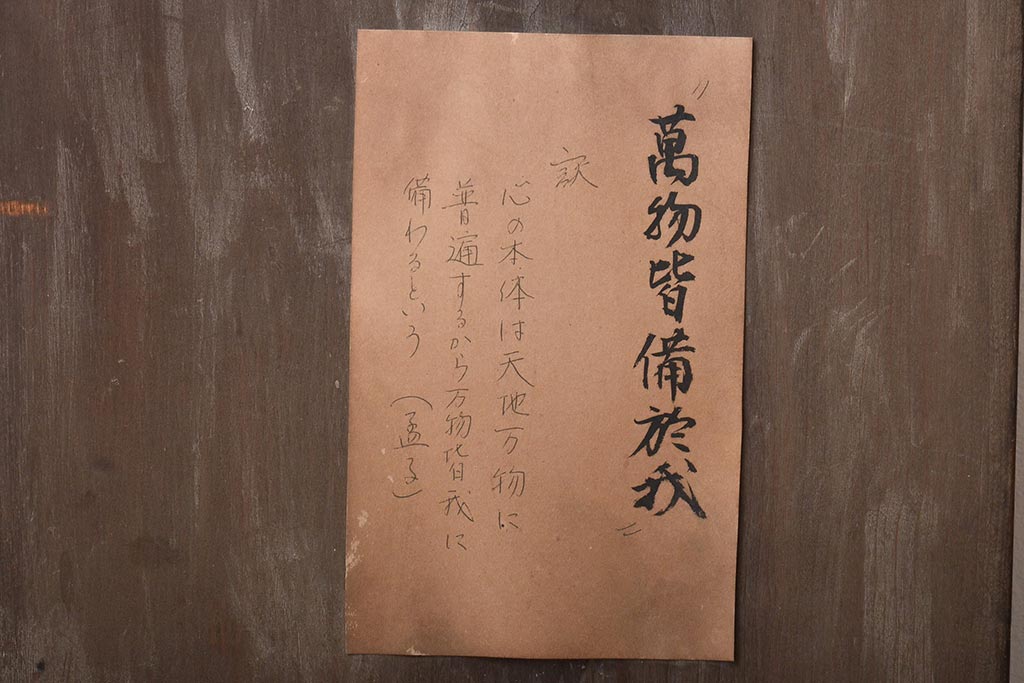 〃萬物皆備於我〃
訳
心の本体は天地万物に
普遍するから万物皆我に
備わるという（孟子）